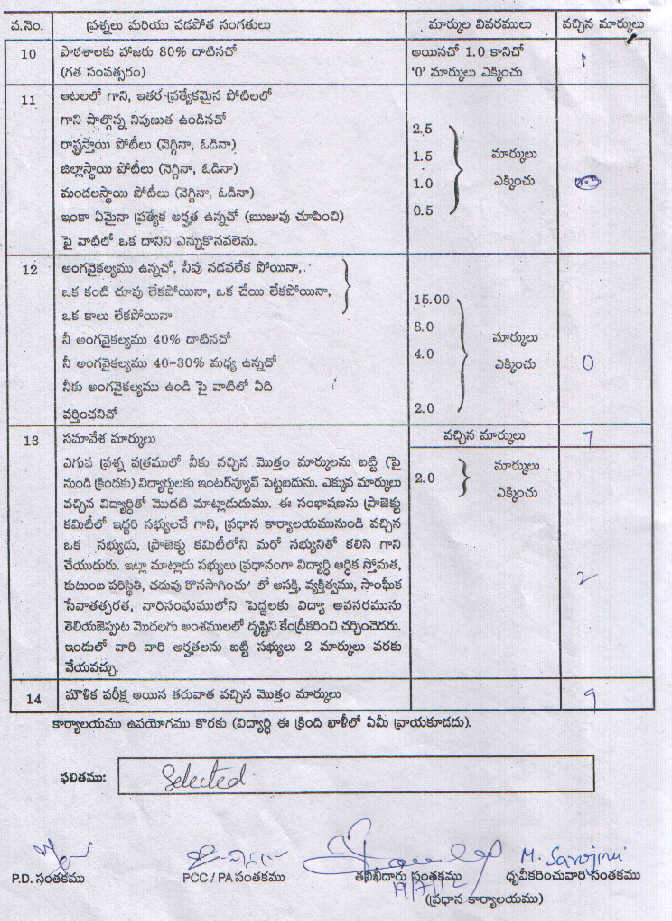 వ.నెం. ప్రశ్నలు మరియు పడపోత సంగతులు మార్కుల వివరములు వచ్చిన మార్కులు
10 పాఠశాలకు హాజరు 80% దాటినచో అయినచో 1.0 కానిచో 1
(గత సంవత్సరం) '0' మార్కులు ఎక్కించు
11 ఆటలలో గాని, ఇతర ప్రత్యేకమైన పోటీలలో
గాని పాల్గొన్న నిపుణుత ఉండినచో
రాష్ట్రస్థాయి పోటీలు (నెగ్గినా, ఓడినా) 2.5
జిల్లాస్థాయి పోటీలు (నెగ్గినా, ఓడినా) 1.5 మార్కులు
మండలస్థాయి పోటీలు (నెగ్గినా, ఓడినా) 1.0 ఎక్కించు
ఇంకా ఏమైనా ప్రత్యేక అర్హత ఉన్నచో (ఋజువు చూపించి) 0.5
పై వాటిలో ఒక దానిని ఎన్నుకొనవలెను.
12 అంగవైకల్యము ఉన్నచో, నీవు నడవలేక పోయినా,
ఒక కంటి చూపు లేకపోయినా, ఒక చేయి లేకపోయినా, 15.00
ఒక కాలు లేకపోయినా 8.0
నీ అంగవైకల్యము 40% దాటినచో 4.0 మార్కులు
నీ అంగవైకల్యము 40-30% మధ్య ఉన్నదో ఎక్కించు 0
నీకు అంగవైకల్యము ఉండి పై వాటిలో ఏది
వర్తించనిచో 2.0
13 సమావేశ మార్కులు వచ్చిన మార్కులు 7
ఎగువ ప్రశ్న పత్రములో నీకు వచ్చిన మొత్తం మార్కులను బట్టి (పై 2.0 మార్కులు
నుండి క్రిందకు) విద్యార్థులకు ఇంటర్వ్యూవ్ పెట్టబడును. ఎక్కువ మార్కులు ఎక్కించు
వచ్చిన విద్యార్థితో మొదటి మాట్లాడుదుము. ఈ సంభాషణను ప్రాజెక్టు
కమిటీలో ఇద్దరి సభ్యులచే గాని, ప్రధాన కార్యాలయమునుండి వచ్చిన
ఒక సభ్యుడు, ప్రాజెక్టు కమిటీలోని మరో సభ్యునితో కలిసి గాని
చేయుదురు. ఇట్లా మాట్లాడు సభ్యులు ప్రధానంగా విద్యార్థి ఆర్థిక స్తోమత,
కుటుంబ పరిస్థితి, చదువు కొనసాగించు' లో ఆసక్తి, వ్యక్తిత్వము, సాంఘీక 2
సేవాతత్పరత, వారిసంఘములోని పెద్దలకు విద్యా అవసరమును
తెలియజెప్పుట మొదలగు అంశములలో దృష్టిని కేంద్రీకరించి చర్చించెదరు.
ఇందులో వారి వారి అర్హతలను బట్టి సభ్యులు 2 మార్కులు వరకు
వేయవచ్చు.
14 మౌళిక పరీక్ష అయిన తరువాత వచ్చిన మొత్తం మార్కులు 9
కార్యాలయము ఉపయోగము కొరకు (విద్యార్థి ఈ క్రింది ఖాళీలో ఏమీ వ్రాయకూడదు).
ఫలితము: Selected
M. Sarojini
P.D. సంతకము PCC / PA సంతకము తనిఖీదారు సంతకము ధృవీకరించువారి సంతకము
(ప్రధాన కార్యాలయము)